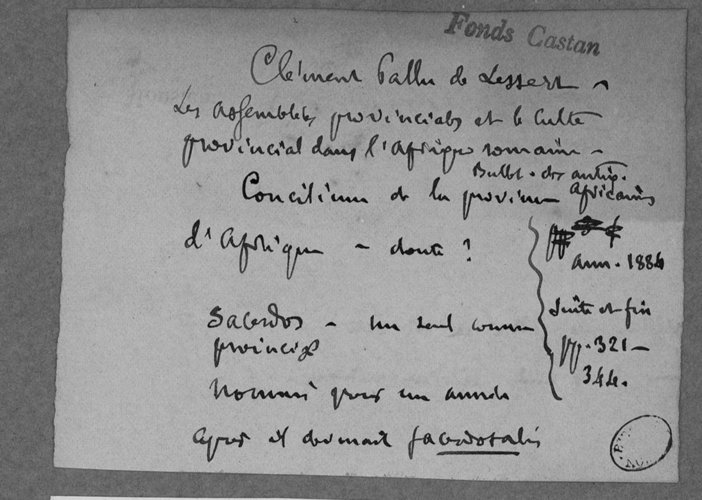 Fonds Castan
Clément Pallu de Lessert -
Les assemblées provinciales et le culte
provincial dans l'Afrique romaine -
Bullet. des antiq.
africaines
Concilium de la province
d'Afrique - doute ?
pp
ann. 1884
Suite et fin
pp. 321-
344.
Sacerdos - un seul comme
provinciæ
Nommé pour un année
après il devenait sacerdotalis